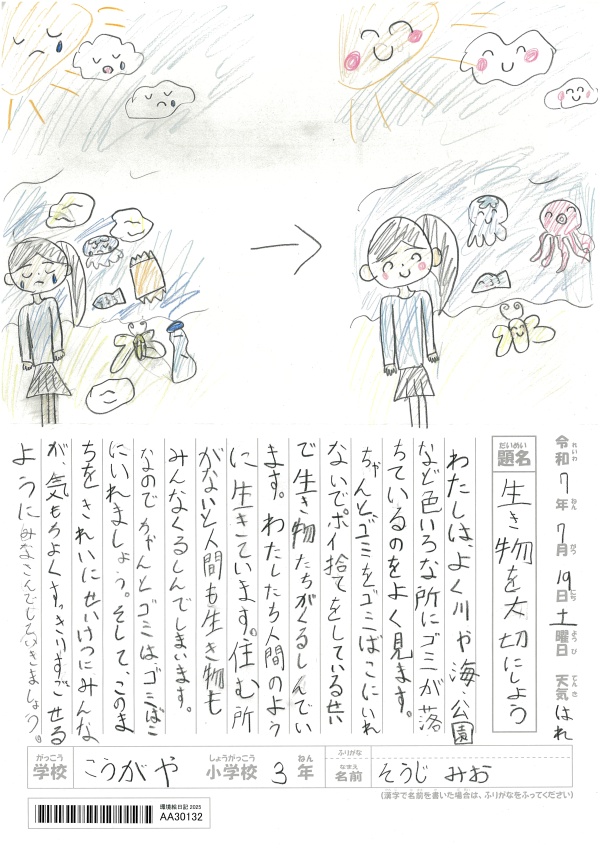 れいわ ねん がつ にち ようび てんき
令和7年7月19日土曜日 天気 はれ
だいめい
題名 生き物を大切にしよう
わたしは、よく川や海、公園
など色いろな所にゴミが落
ちているのをよく見ます。
ちゃんとゴミをゴミばこにいれ
ないでポイ捨てをしているせい
で生き物たちがくるしんでい
ます。わたしたち人間のよう
に生きています。住む所
がないと人間も生き物も
みんなくるしんでしまいます。
なのでちゃんとゴミはゴミばこ
にいれましょう。そして、このま
ちをきれいにせいけつにみんな
が、気もちよくすっきりすごせる
ようにみなさんでしていきましょう。
がっこう しょうがっこう ねん ふりがな なまえ
学校 こうがや 小学校 3年 名前 そうじ みお
(漢字で名前を書いた場合は、ふりがなをふってください)
環境絵日記 2025
AA30132